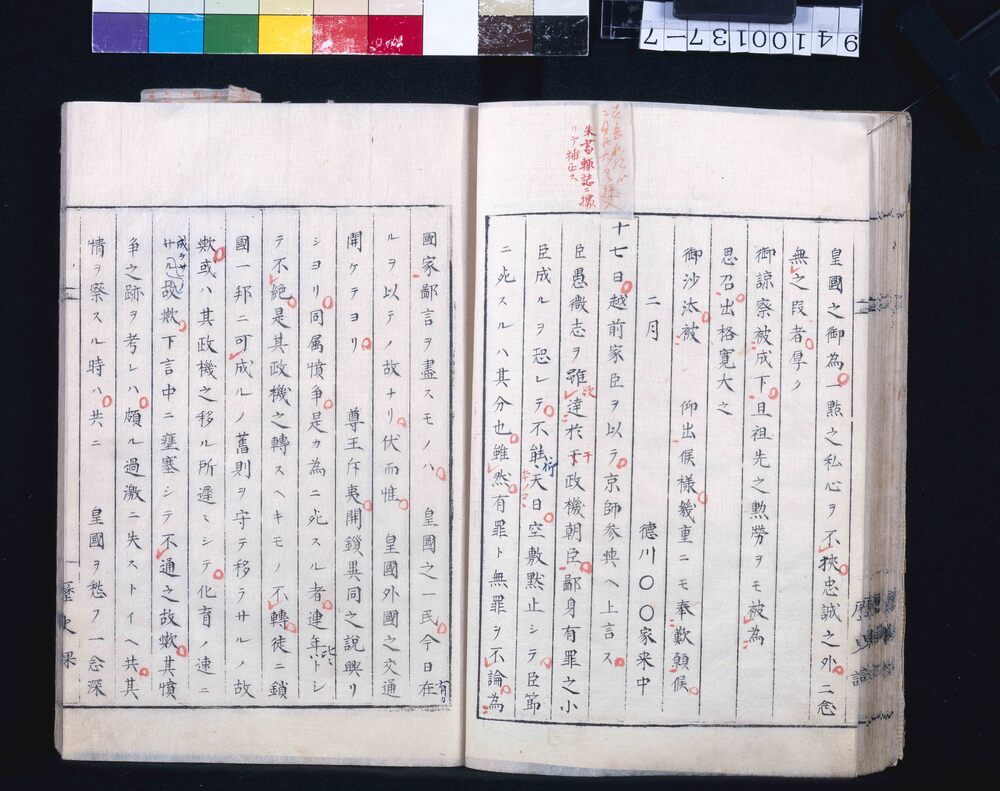 皇國之御為一點之私心ヲ不挾忠誠之外二念
無之段者厚ノ
御諒察被成下且祖先之勲勞ヲモ被為
思召出格寛大之
御沙汰被 仰出候様幾重ニモ奉歎願候
二月 德川〇〇家来中
十七日越前家臣ヲ以テ京師参 ヘ上言ス
臣愚微志ヲ雖達於于政機朝臣鄙身有罪之小
臣成ルヲ恐レテ不能天日空敷黙止シテ臣節
ニ死スルハ其分也雖然有罪ト無罪ヲ不論為
國家鄙言ヲ盡スモノハ 皇國之一民今日在
ルヲ以テノ故ナリ伏而惟 皇國外國之交通
開ケテヨリ 尊王斥夷開鎖異同之説興リ
シヨリ同属憤争是カ為ニ死スル者連年トシ
テ不絶是其政機之轉スヘキモノ不轉徒ニ鎖
國一邦ニ可成ルノ舊則ヲ守テ移ラサルノ故
歟或ハ其政機之移ル所遅〻シテ化育ノ速ニ
サル故歟下言中ニ壅塞シテ不通之故歟其憤
争之跡ヲ考レハ頗ル過激ニ失ストイヘ共其
情ヲ察スル時ハ共ニ 皇國ヲ愁フ一念深
朱書輙誌ニ據
リテ補正ス
歴史課
9410013 7-7